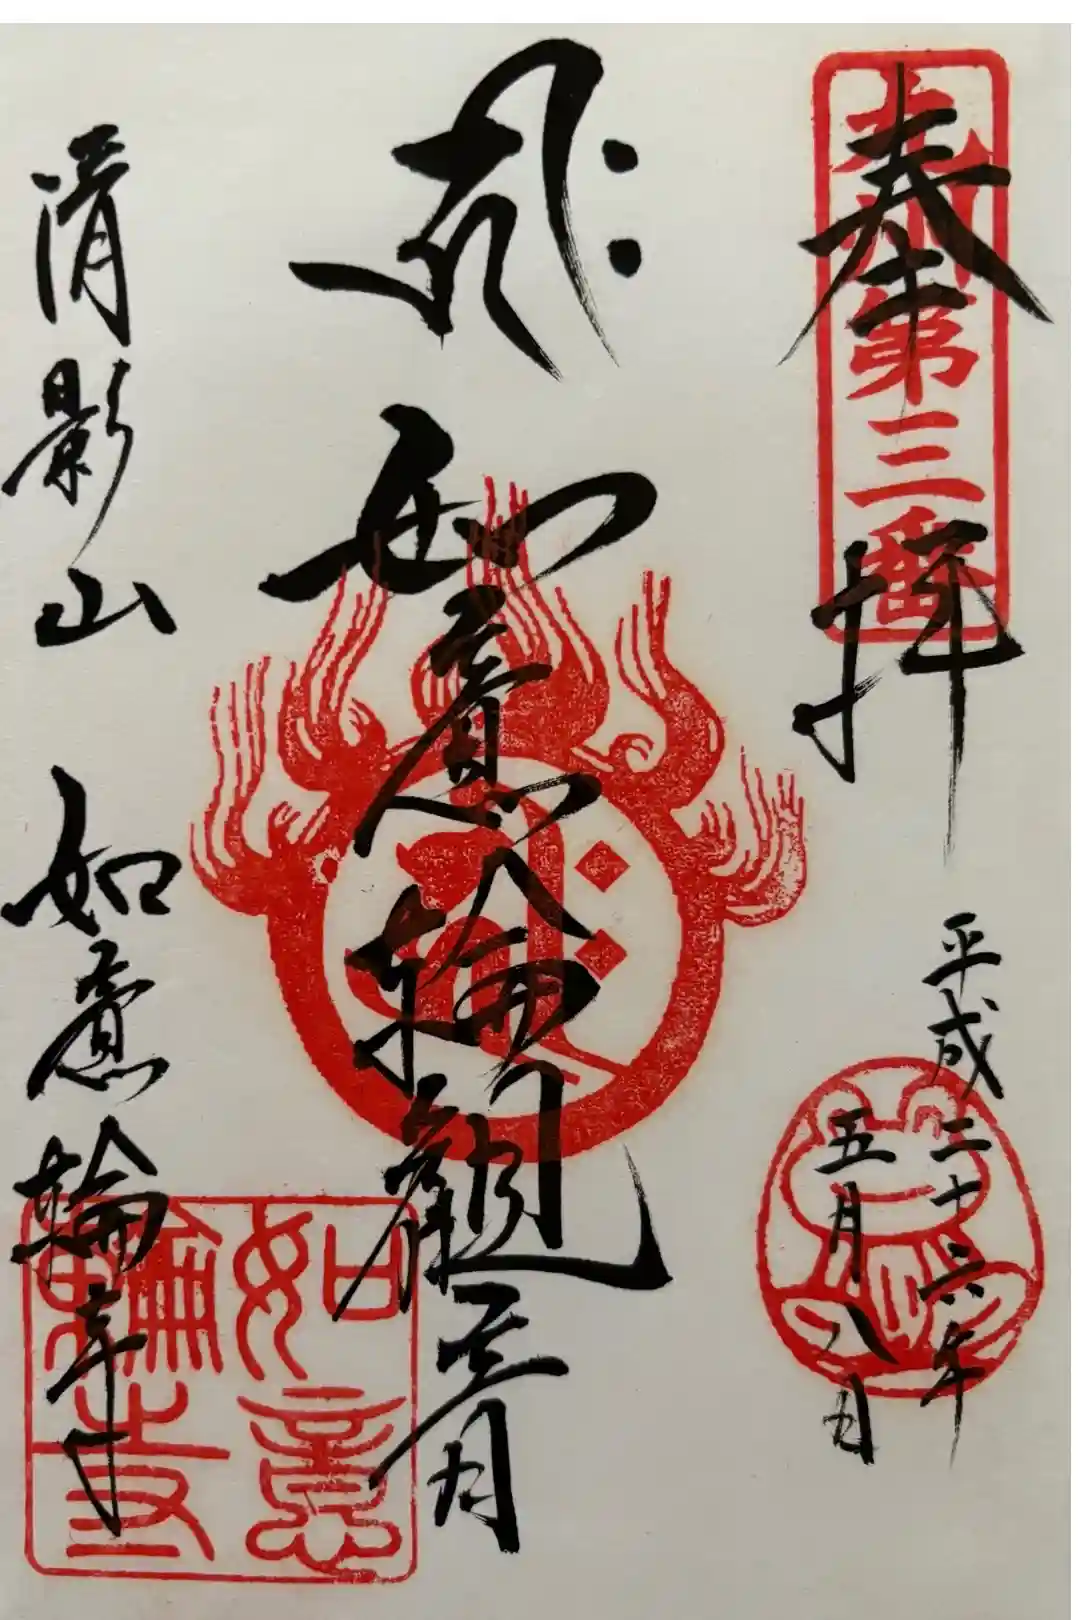 九州第三番
奉拝
平成二十六年
五月八日
𑖮𑖿𑖨𑖱𑖾
如意輪観世音
𑖮𑖿𑖨𑖱𑖾
清影山
如意輪寺
如意
輪寺